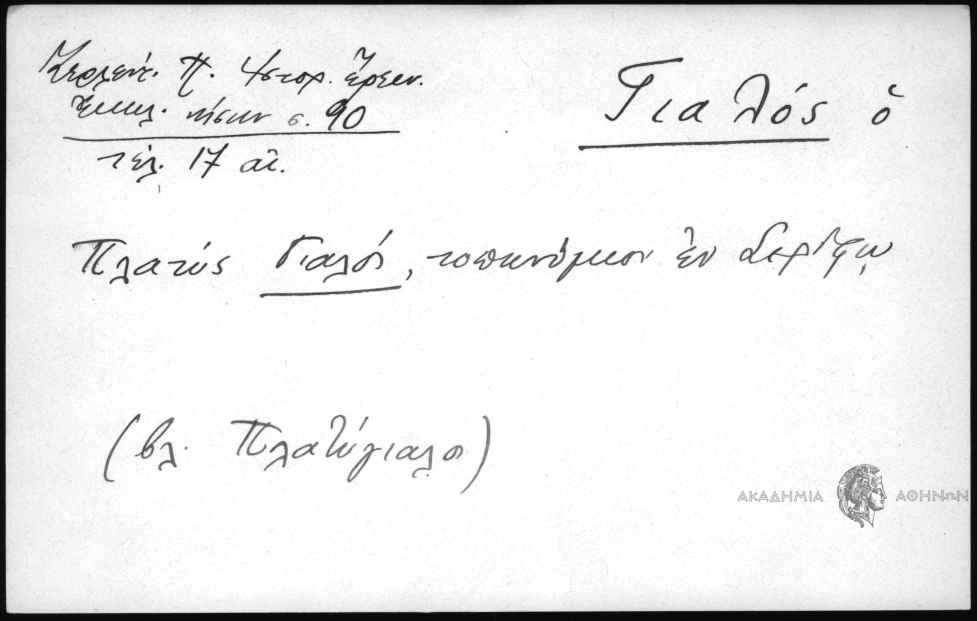 Ζερλέντ. Π. Ἱστορ. Ἔρευν.
Ἐκκλ. νήσων σ. 90
τέλ. 17 αἰ.
Γιαλός ὁ
Πλατύς Γιαλός, τοπωνύμιον ἐν Σερίφῳ
(βλ. Πλατύγιαλος)
ΑΚΑΔΗΜΙΑ ΑΘΗΝΩΝ